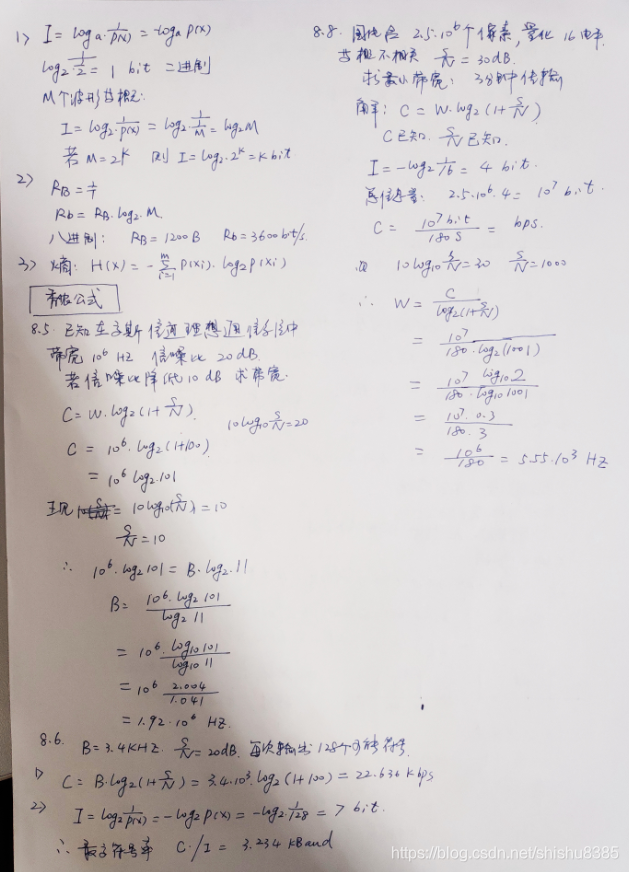 1) I = logₐ 1/P(x) = -logₐ P(x)
log₂ 1/(1/2) = 1 bit = 二进制
M个波形等概:
I = log₂ 1/P(x) = log₂ 1/(1/M) = log₂M
若 M = 2^K 则 I = log₂·2^K = K bit
2) R_B = 1/T
Rb = R_B·log₂M.
八进制: R_B = 1200B Rb = 3600bit/s.
3) 熵: H(x) = -∑_{i=1}^{m} P(xi)·log₂P(xi)
香农公式
8.5. 已知在高斯信道理想通信系统中
带宽 10⁶ HZ 信噪比 20dB
若信噪比降低10dB 求带宽.
C = W·log₂(1+S/N) 10log₁₀S/N = 20
C = 10⁶·log₂(1+100)
= 10⁶ log₂101
= 10log₁₀(S/N) = 10
S/N = 10
∴ 10⁶·log₂101 = B·log₂11
B = 10⁶·log₂101 / log₂11
= 10⁶·log₁₀101 / log₁₀11
= 10⁶ 2.004/1.041
= 1.92·10⁶ HZ.
8.6. B = 3.4KHZ. S/N = 20dB. 每次输出128个可能符号.
1) C = B·log₂(1+S/N) = 3.4·10³·log₂(1+100) = 22.636 kbps
2) I = log₂ 1/P(x) = -log₂P(x) = -log₂ 1/128 = 7 bit.
∴ 符号率 C/I = 3.234 kBaud
8.8. 图片含 2.5·10⁶个像素, 量化 16电平.
等概不相关 S/N = 30dB.
求最小带宽: 3分钟传输
解: C = W·log₂(1+S/N)
C已知. S/N已知.
I = -log₂ 1/16 = 4 bit.
总信息量: 2.5·10⁶·4 = 10⁷ bit.
C = 10⁷bit / 180S = bps.
10log₁₀S/N = 30 S/N = 1000
∴ W = C / log₂(1+S/N)
= 10⁷ / 180·log₂(1001)
= 10⁷ log₁₀2 / 180·log₁₀1001
= 10⁷·0.3 / 180·3
= 10⁶/180 = 5.55·10³ HZ
https://blog.csdn.net/shishu8385